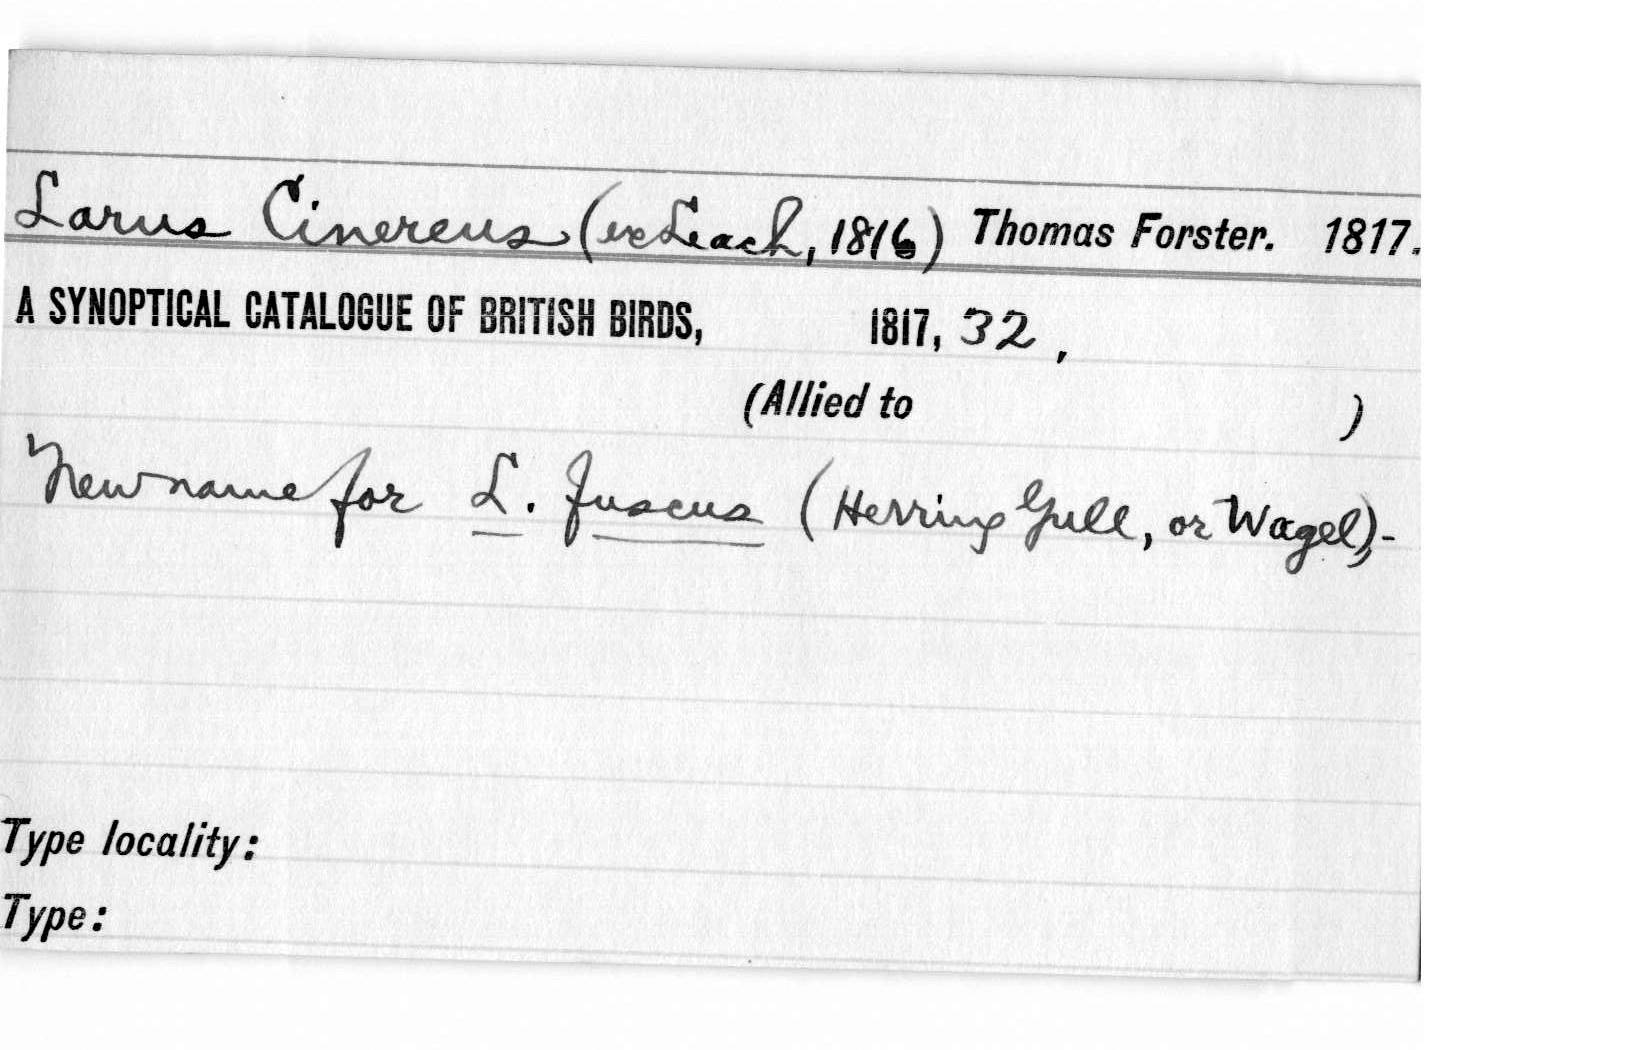 Larus Cinereus (ex Leach, 1816) Thomas Forster. 1817.
A SYNOPTICAL CATALOGUE OF BRITISH BIRDS, 1817, 32,
(Allied to )
New name for L. fuscus (Herring Gull, or Wagel),-
Type locality:
Type: